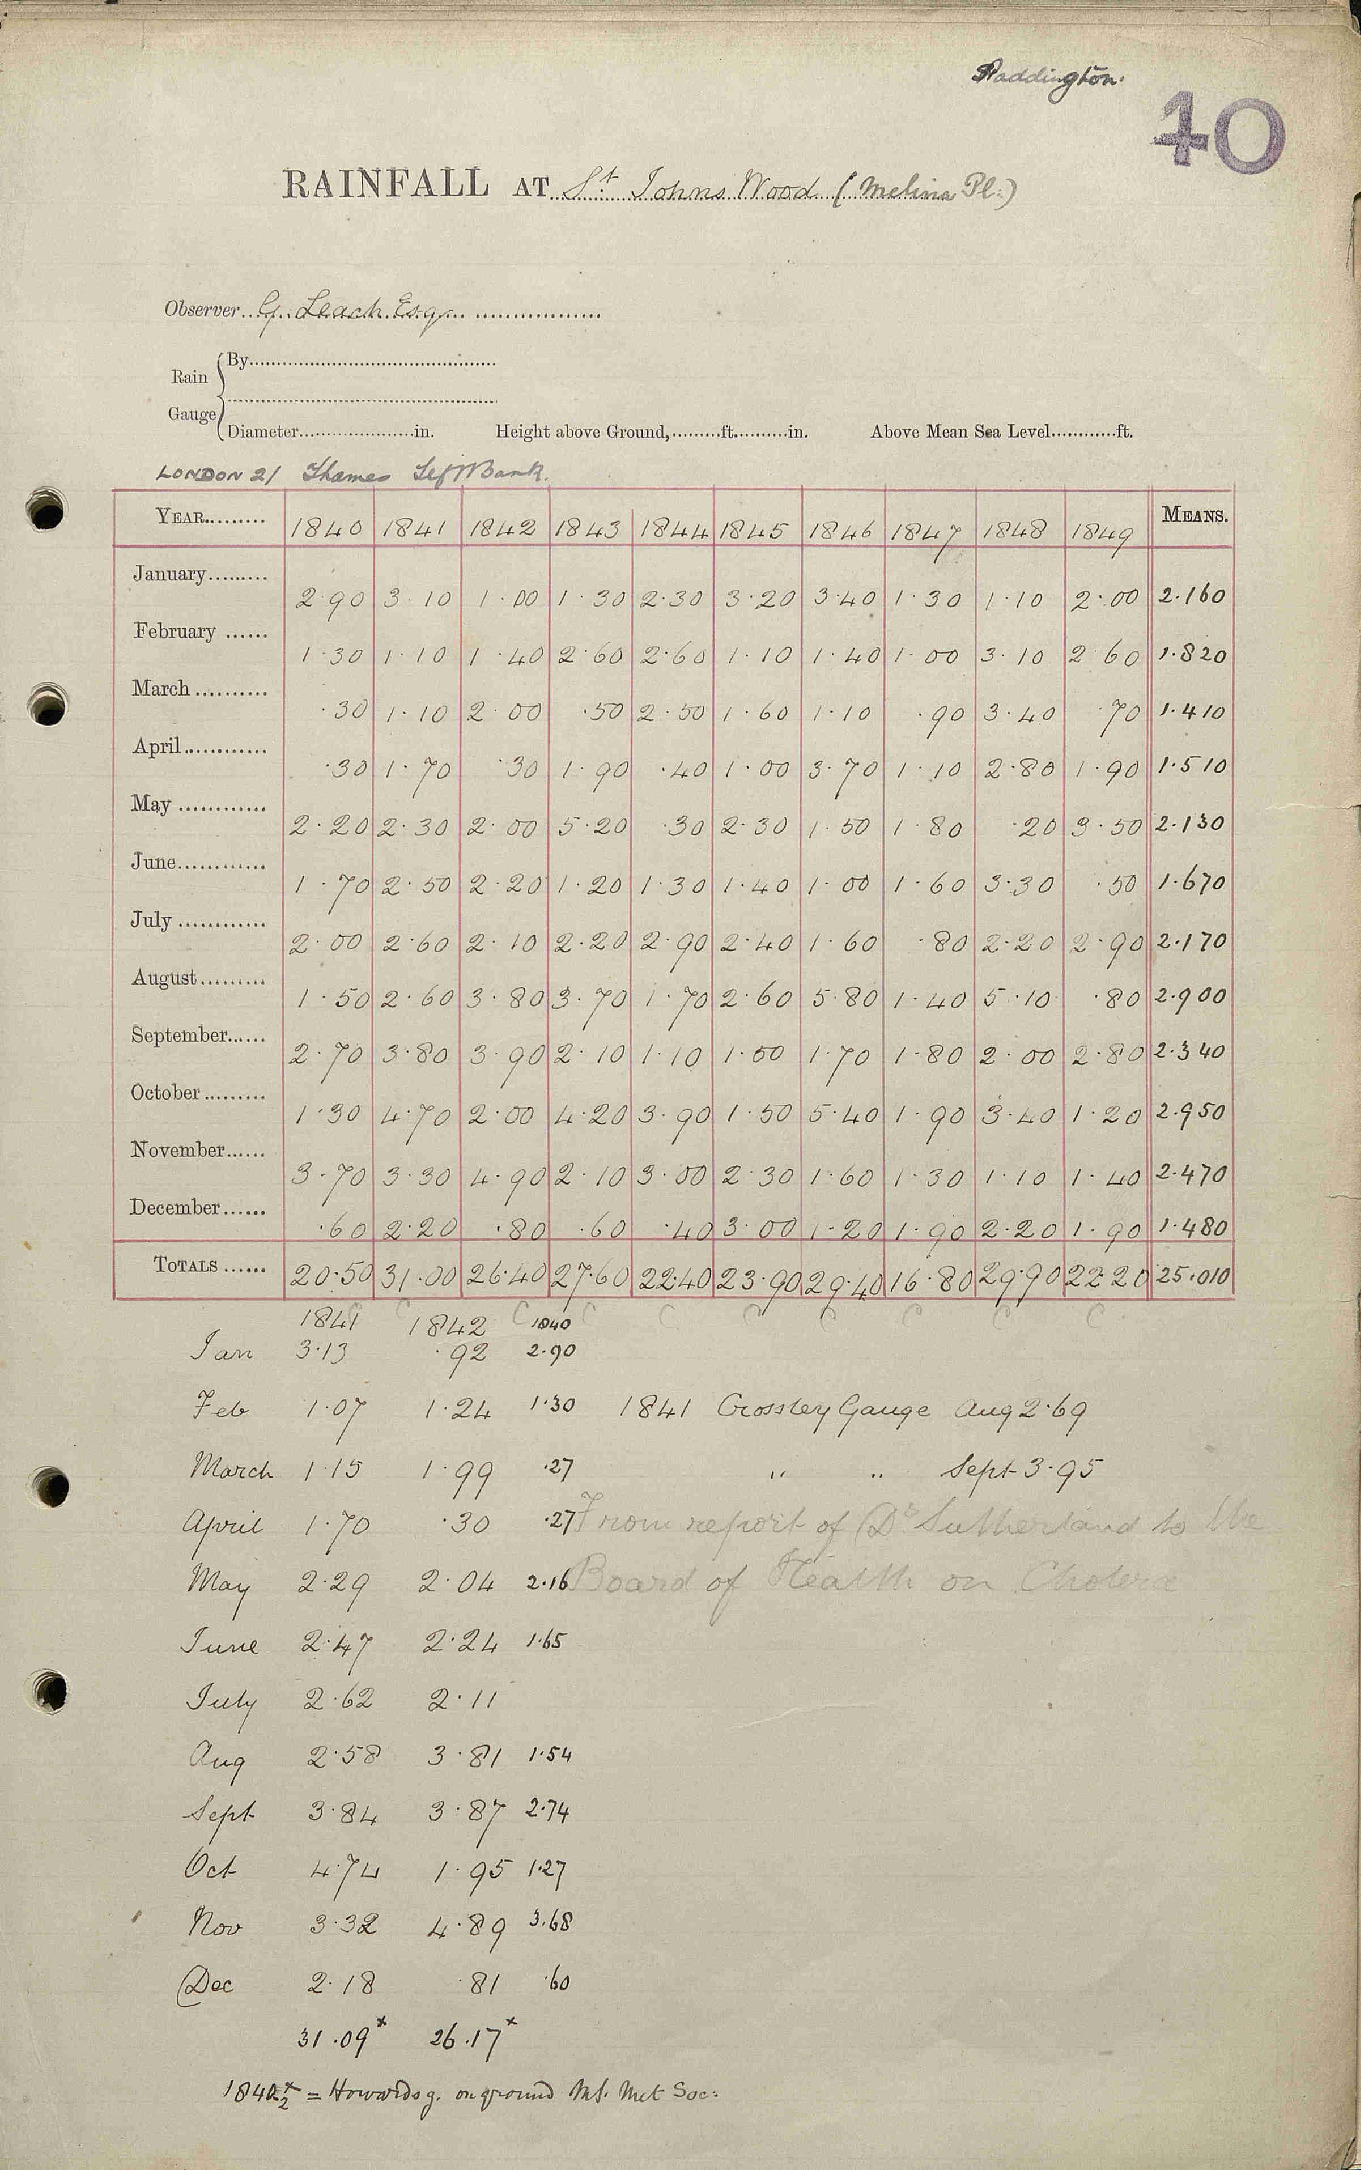 Paddington.
40
RAINFALL AT St. Johns Wood (Melina Pl:)
Observer G. Leach Esq
Rain Gauge
By
Diameter in. Height above Ground, ft. in. Above Mean Sea Level ft.
LONDON 21 Thames Left Bank.
YEAR 1840 1841 1842 1843 1844 1845 1846 1847 1848 1849 MEANS.
January 2.90 3.10 1.00 1.30 2.30 3.20 3.40 1.30 1.10 2.00 2.160
February 1.30 1.10 1.40 2.60 2.60 1.10 1.40 1.00 3.10 2.60 1.820
March .30 1.10 2.00 .50 2.50 1.60 1.10 .90 3.40 .70 1.410
April .30 1.70 .30 1.90 .40 1.00 3.70 1.10 2.80 1.90 1.510
May 2.20 2.30 2.00 5.20 .30 2.30 1.50 1.80 .20 3.50 2.130
June 1.70 2.50 2.20 1.20 1.30 1.40 1.00 1.60 3.30 .50 1.670
July 2.00 2.60 2.10 2.20 2.90 2.40 1.60 .80 2.20 2.90 2.170
August 1.50 2.60 3.80 3.70 1.70 2.60 5.80 1.40 5.10 .80 2.900
September 2.70 3.80 3.90 2.10 1.10 1.50 1.70 1.80 2.00 2.80 2.340
October 1.30 4.70 2.00 4.20 3.90 1.50 5.40 1.90 3.40 1.20 2.950
November 3.70 3.30 4.90 2.10 3.00 2.30 1.60 1.30 1.10 1.40 2.470
December .60 2.20 .80 .60 .40 3.00 1.20 1.90 2.20 1.90 1.480
TOTALS 20.50 31.00 26.40 27.60 22.40 23.90 29.40 16.80 29.90 22.20 25.010
C C C C C C C C C C
1841 1842 1840
Jan 3.13 .92 2.90
Feb 1.07 1.24 1.30 1841 Crossley Gauge Aug 2.69
March 1.15 1.99 .27 " " Sept 3.95
April 1.70 .30 .27 From report of Dr Sutherland to the
May 2.29 2.04 2.16 Board of Health on Cholera
June 2.47 2.24 1.65
July 2.62 2.11
Aug 2.58 3.81 1.54
Sept 3.84 3.87 2.74
Oct 4.74 1.95 1.27
Nov 3.32 4.89 3.68
Dec 2.18 .81 .60
31.09x 26.17x
1840-2 x = Howards g. on ground MS. Met Soc: